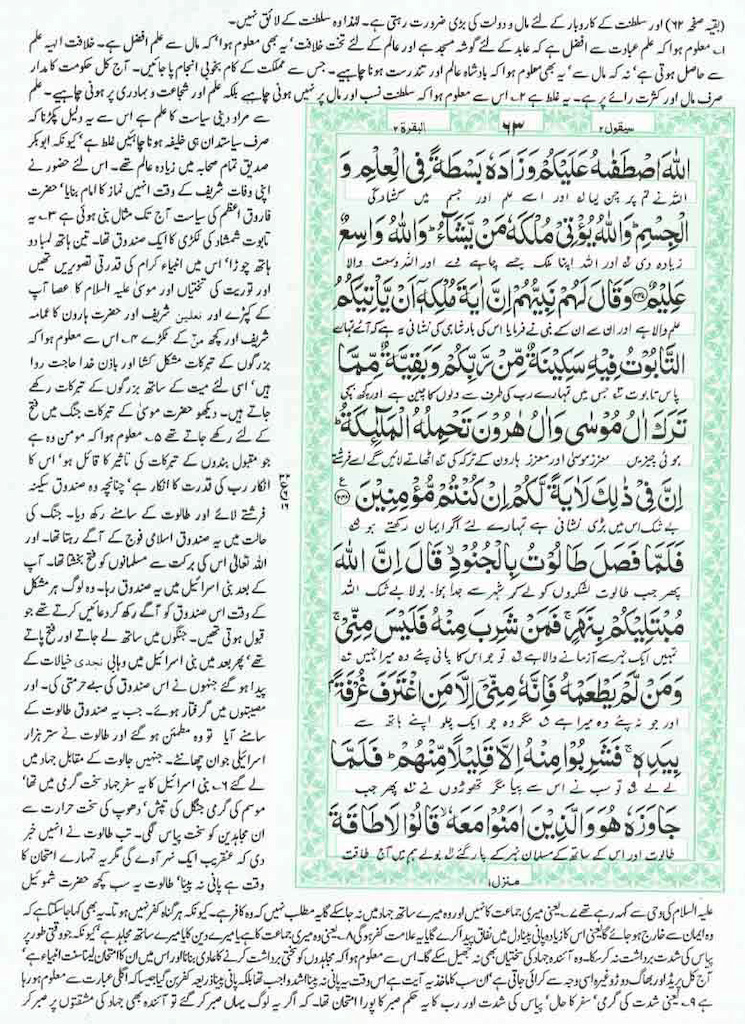 (بقیہ صفحہ ۶۲) اور سلطنت کے کاروبار کے لئے مال و دولت کی بڑی ضرورت رہتی ہے۔ لہٰذا وہ سلطنت کے لائق نہیں۔
۱۔ معلوم ہوا کہ علم عبادت سے افضل ہے کہ عابد کے لئے گوشہ مسجد ہے اور عالم کے لئے تخت خلافت' یہ بھی معلوم ہوا' کہ مال سے علم افضل ہے۔ خلافت الٰہیہ علم
سے حاصل ہوتی ہے' نہ کہ مال سے' یہ بھی معلوم ہوا کہ بادشاہ عالم اور تندرست ہونا چاہیے۔ جس سے مملکت کے کام بخوبی انجام پا جائیں۔ آج کل حکومت کا مدار
صرف مال اور کثرت رائے پر ہے۔ یہ غلط ہے ۲۔ اس سے معلوم ہوا کہ سلطنت نسب اور مال پر نہیں ہونی چاہیے بلکہ علم اور شجاعت و بہادری پر ہونی چاہیے۔ علم
سیقول ۲
۶۳
البقرۃ ۲
اللّٰهَ اصْطَفٰىهُ عَلَیْكُمْ وَزَادَهٗ بَسْطَةً فِی الْعِلْمِ وَ
اللہ نے تم پر چن لیا اور اسے علم اور جسم میں کشادگی
الْجِسْمِ ؕ وَاللّٰهُ یُؤْتِیْ مُلْكَهٗ مَنْ یَّشَآءُ ؕ وَاللّٰهُ وَاسِعٌ
زیادہ دی اور اللہ اپنا ملک جسے چاہے دے اور اللہ وسعت والا
عَلِیْمٌ ﴿۲۴۷﴾ وَقَالَ لَهُمْ نَبِیُّهُمْ اِنَّ اٰیَةَ مُلْكِهٖۤ اَنْ یَّاْتِیَكُمُ
علم والا ہے اور ان سے ان کے نبی نے فرمایا اس کی بادشاہی کی نشانی یہ ہے کہ آئے تمہارے
التَّابُوْتُ فِیْهِ سَكِیْنَةٌ مِّنْ رَّبِّكُمْ وَبَقِیَّةٌ مِّمَّا
پاس تابوت جس میں تمہارے رب کی طرف سے دلوں کا چین ہے اور کچھ بچی
تَرَكَ اٰلُ مُوْسٰى وَاٰلُ هٰرُوْنَ تَحْمِلُهُ الْمَلٰٓىِٕكَةُ ؕ
ہوئی چیزیں معزز موسیٰ اور معزز ہارون کے ترکہ کی اٹھاتے لائیں گے اسے فرشتے
اِنَّ فِیْ ذٰلِكَ لَاٰیَةً لَّكُمْ اِنْ كُنْتُمْ مُّؤْمِنِیْنَ ﴿۲۴۸﴾
بے شک اس میں بڑی نشانی ہے تمہارے لئے اگر ایمان رکھتے ہو
فَلَمَّا فَصَلَ طَالُوْتُ بِالْجُنُوْدِ ۙ قَالَ اِنَّ اللّٰهَ
پھر جب طالوت لشکروں کو لے کر شہر سے جدا ہوا۔ بولا بے شک اللہ
مُبْتَلِیْكُمْ بِنَهَرٍ ۚ فَمَنْ شَرِبَ مِنْهُ فَلَیْسَ مِنِّیْ ۚ
تمہیں ایک نہر سے آزمانے والا ہے تو جو اس کا پانی پئے وہ میرا نہیں
وَمَنْ لَّمْ یَطْعَمْهُ فَاِنَّهٗ مِنِّیْۤ اِلَّا مَنِ اغْتَرَفَ غُرْفَةًۢ
اور جو نہ پئے وہ میرا ہے مگر وہ جو ایک چلو اپنے ہاتھ سے
بِیَدِهٖ ۚ فَشَرِبُوْا مِنْهُ اِلَّا قَلِیْلًا مِّنْهُمْ ؕ فَلَمَّا
لے لے تو سب نے اس سے پیا مگر تھوڑوں نے پھر جب
جَاوَزَهٗ هُوَ وَالَّذِیْنَ اٰمَنُوْا مَعَهٗ ۙ قَالُوْا لَا طَاقَةَ
طالوت اور اس کے ساتھ کے مسلمان نہر کے پار گئے بولے ہم میں آج طاقت
منزل ۱
سے مراد دینی سیاست کا علم ہے اس سے یہ دلیل پکڑنا کہ
صرف سیاستدان ہی خلیفہ ہونا چاہئیں غلط ہے' کیونکہ ابوبکر
صدیق تمام صحابہ میں زیادہ عالم تھے۔ اس لئے حضور نے
اپنی وفات شریف کے وقت انہیں نماز کا امام بنایا' حضرت
فاروق اعظم کی سیاست آج تک مثال بنی ہوئی ہے ۳۔ یہ
تابوت شمشاد کی لکڑی کا ایک صندوق تھا۔ تین ہاتھ لمبا دو
ہاتھ چوڑا' اس میں انبیاء کرام کی قدرتی تصویریں تھیں
اور توریت کی تختیاں اور موسیٰ علیہ السلام کا عصا آپ
کے کپڑے اور نعلین شریف اور حضرت ہارون کا عمامہ
شریف اور کچھ منّ کے ٹکڑے ۴۔ اس سے معلوم ہوا کہ
بزرگوں کے تبرکات مشکل کشا اور باذن خدا حاجت روا
ہیں' اسی لئے میت کے ساتھ بزرگوں کے تبرکات رکھے
جاتے ہیں۔ دیکھو حضرت موسیٰ کے تبرکات جنگ میں فتح
کے لئے رکھے جاتے تھے ۵۔ معلوم ہوا کہ مومن وہ ہے
جو مقبول بندوں کے تبرکات کی تاثیر کا قائل ہو' اس کا
انکار رب کی قدرت کا انکار ہے' چنانچہ وہ صندوق سکینہ
فرشتے لائے اور طالوت کے سامنے رکھ دیا۔ جنگ کی
حالت میں یہ صندوق اسلامی فوج کے آگے رہتا تھا۔
اللہ تعالیٰ اس کی برکت سے مسلمانوں کو فتح بخشتا تھا۔ آپ
کے بعد بنی اسرائیل میں یہ صندوق رہا۔ وہ لوگ ہر مشکل
کے وقت اس صندوق کو آگے رکھ کر دعائیں کرتے تھے جو
قبول ہوتی تھیں۔ جنگوں میں ساتھ لے جاتے اور فتح پاتے
تھے' پھر بعد میں بنی اسرائیل میں وہابی نجدی خیالات کے
پیدا ہو گئے جنہوں نے اس صندوق کی بے حرمتی کی۔ اور
مصیبتوں میں گرفتار ہوئے۔ جب یہ صندوق طالوت کے
سامنے آیا تو وہ مطمئن ہو گئے اور طالوت نے ستر ہزار
اسرائیلی جوان چھانٹے۔ جنہیں جالوت کے مقابل جہاد میں
لے گئے ۶۔ بنی اسرائیل کا یہ سفر جہاد سخت گرمی میں تھا'
موسم کی گرمی جنگل کی تپش' دھوپ کی سخت حرارت سے
ان مجاہدین کو سخت پیاس لگی۔ تب طالوت نے انہیں خبر
دی کہ عنقریب ایک نہر آوے گی مگر یہ تمہارے امتحان کا
وقت ہے پانی نہ پینا' طالوت یہ سب کچھ حضرت شموئیل
علیہ السلام کی وحی سے کہہ رہے تھے ۷۔ یعنی میری جماعت کا نہیں اور وہ میرے ساتھ جہاد میں نہ جا سکے گا یہ مطلب نہیں کہ وہ کافر ہے۔ کیونکہ ہر گناہ کفر نہیں ہوتا۔ یہ بھی کہا جا سکتا ہے کہ
وہ ایمان سے خارج ہو جائے گا یعنی اس کا زیادہ پانی پینا دل میں نفاق پیدا کرے گا یا یہ علامت کفر ہو گی ۸۔ یعنی وہ میری جماعت کا ہے یا میرے دین کا یا میرے ساتھ مجاہد ہے' کیونکہ جو وقتی طور پر
پیاس کی شدت برداشت نہ کر سکا۔ وہ آئندہ جہاد کی سختیاں بھی نہ جھیل سکے گا۔ اس سے معلوم ہوا کہ مجاہدوں کو سختی برداشت کرنے کا عادی بنانا اور اس میں ان کا امتحان لینا سنت انبیاء ہے'
آج کل پریڈ اور بھاگ دوڑ وغیرہ اسی وجہ سے کرائی جاتی ہے' ان سب کا ماخذ یہ آیت ہے اس وقت یہ پانی نہ پینا اشد واجب تھا بلکہ پانی پینا ذریعہ کفر بن گیا جیسا کہ اگلی عبارت سے معلوم ہو رہا
ہے ۹۔ یعنی شدت کی گرمی' سفر کا حال' پیاس کی شدت اور رب کا یہ حکم صبر کا پورا امتحان تھا۔ کہ اگر یہ لوگ یہاں صبر کر گئے تو آئندہ بھی جہاد کی مشقتوں پر صبر کر